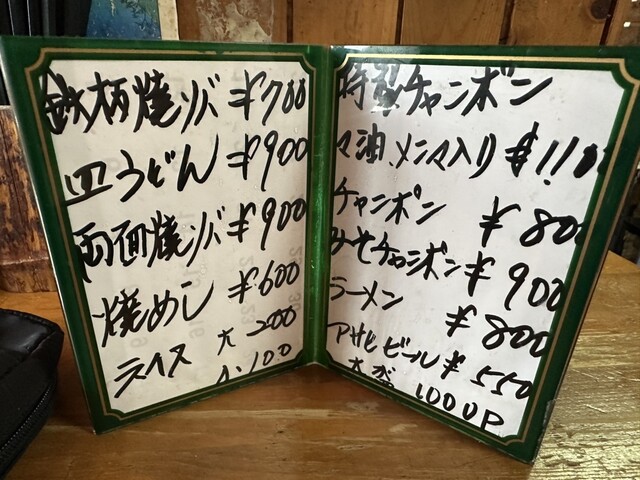 鉄柄焼ソバ ¥700
皿うどん ¥900
両面焼ソバ ¥900
焼めし ¥600
ライス 大 200
小100
特製チャンポン
マ油、メンマ入り ¥1100
チャンポン ¥800
みそチャンポン ¥900
ラーメン ¥800
アサヒビール ¥550
大ビン 1000P